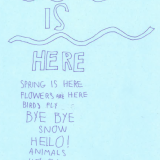 IS
HERE
SPRING IS HERE
FLOWERS ARE HERE
BIRDS FLY
BYE BYE
SNOW
HELLO!
ANIMALS